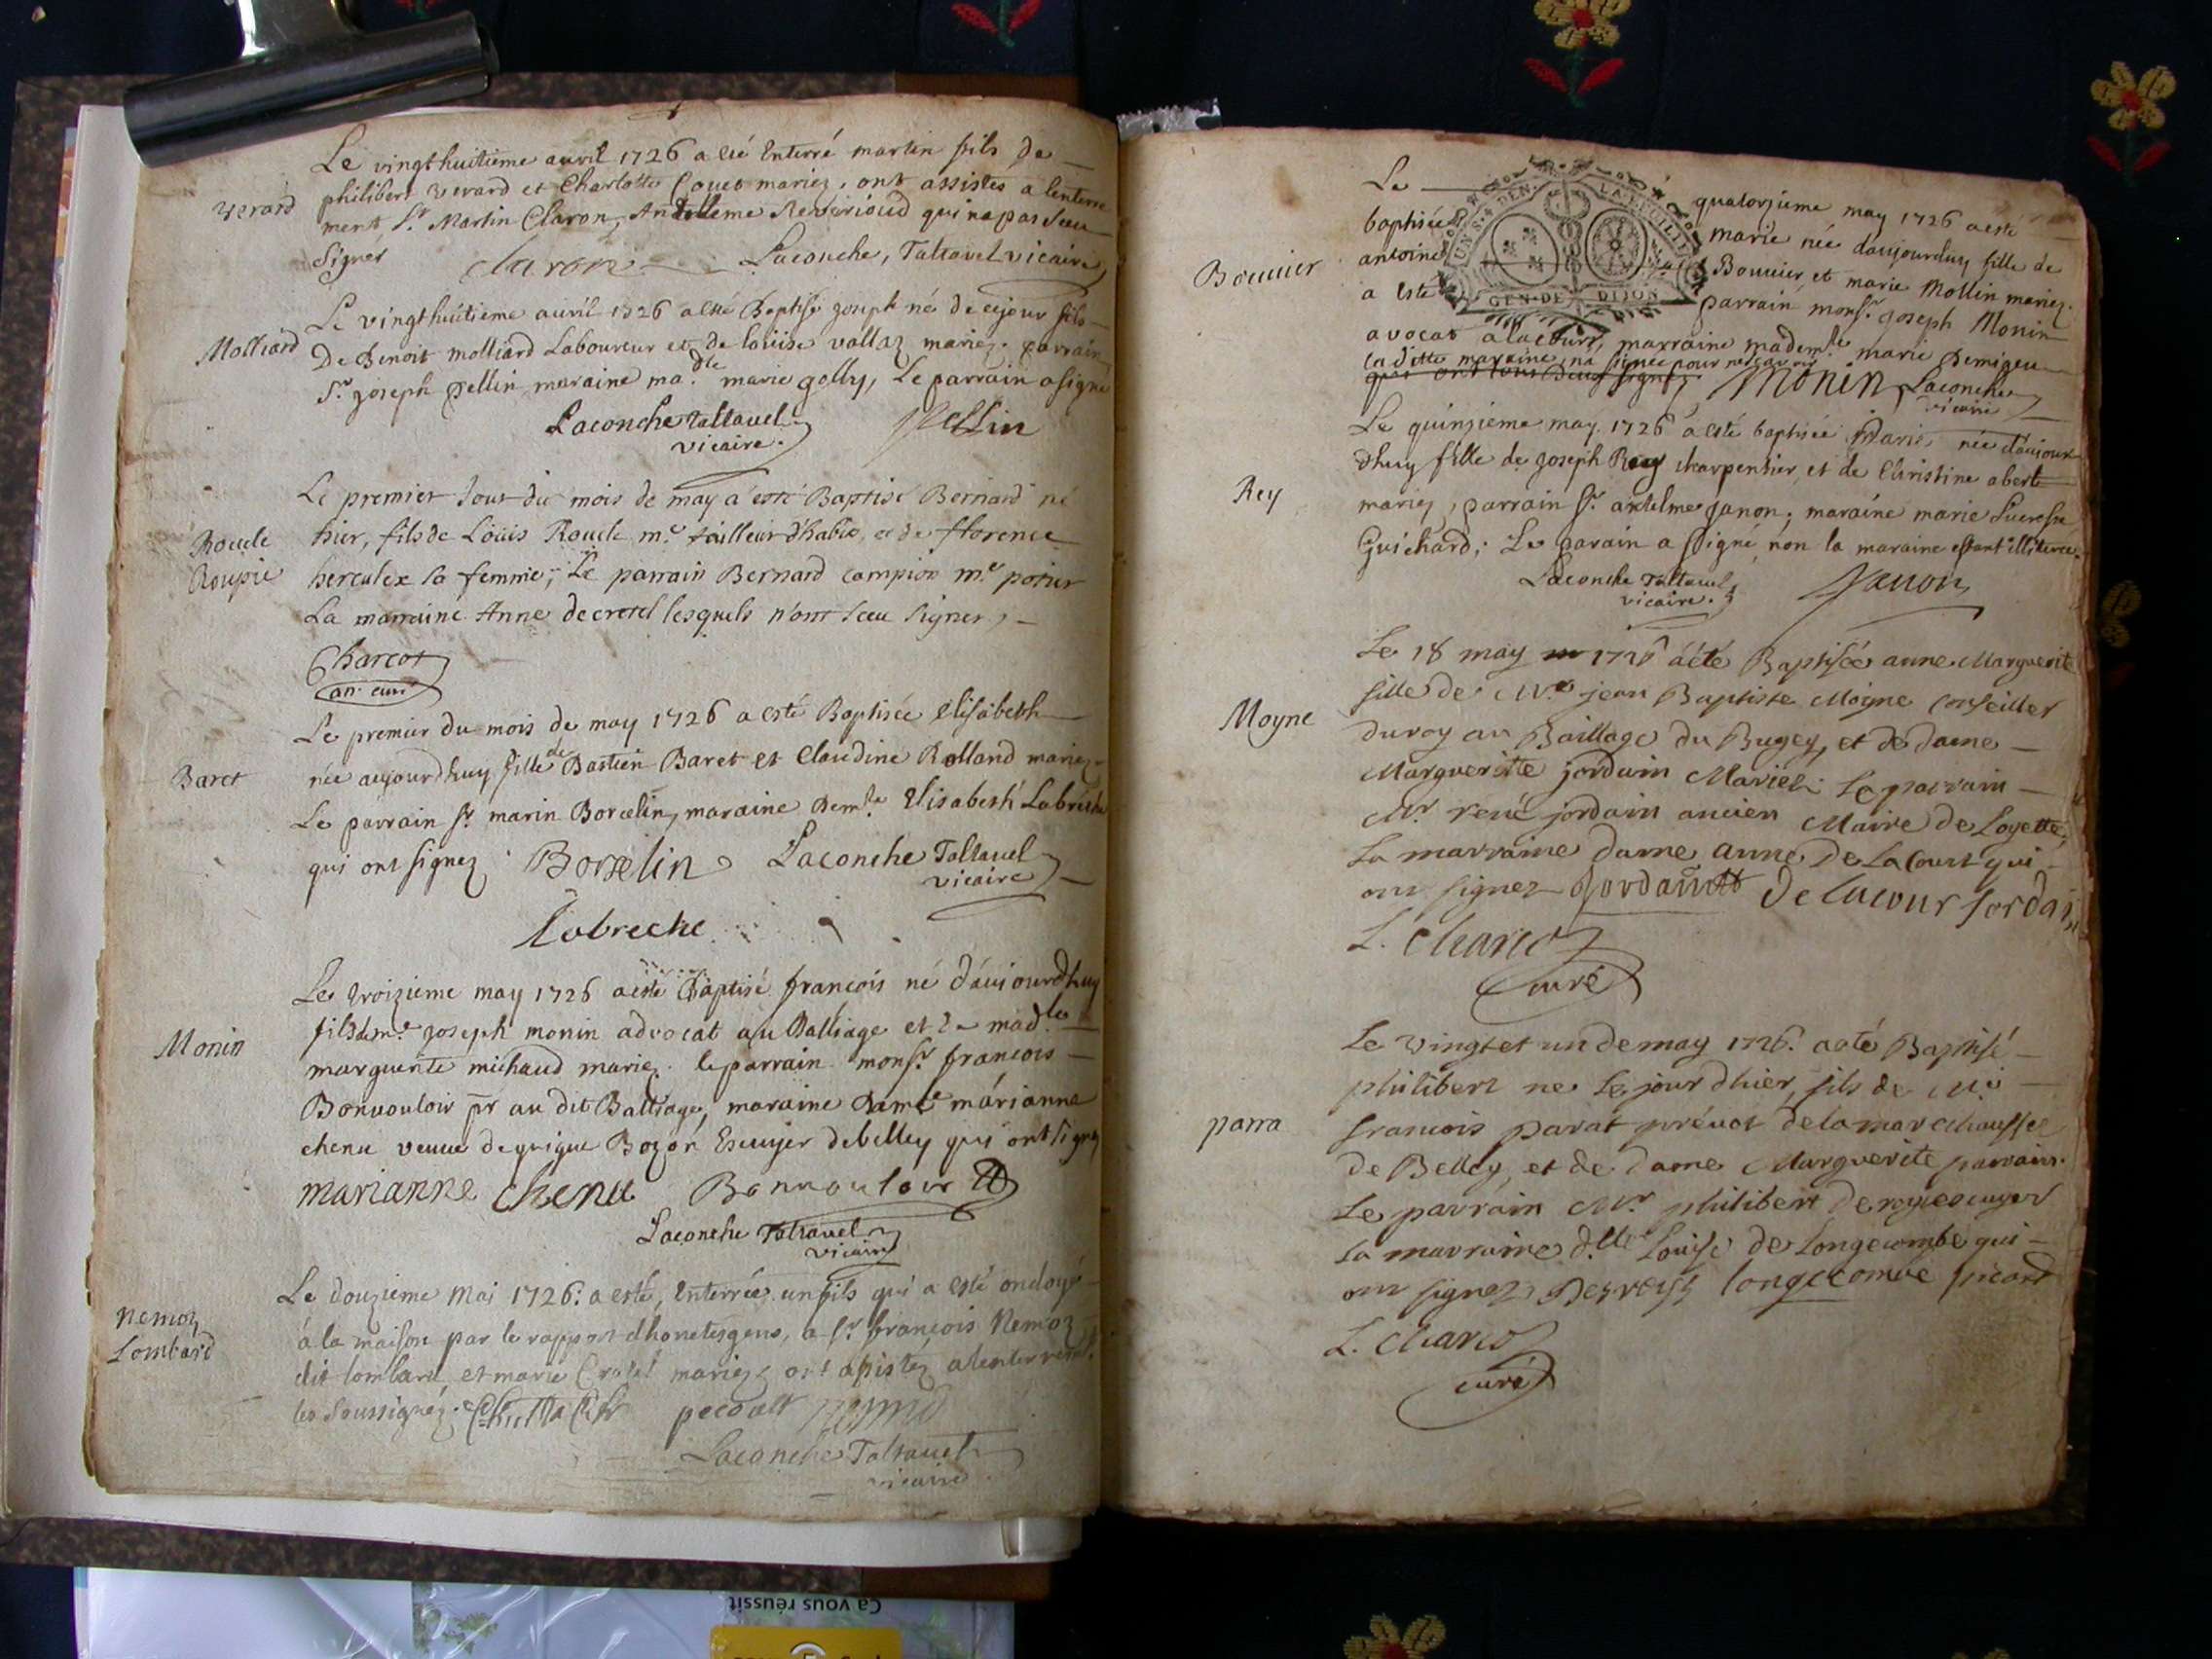 Le vingthuitieme avril 1726 a été Enterré martin fils de
Verard
philibert Verard et Charlotte Couet mariez, ont assistés a lenterre
ment Sr Martin Claron, qui na pas sceu
Signer Claron Laconche, Taltavel vicaire
Le vingthuitieme avril 1726 a esté Baptisé joseph né de cejour fils
Molliard
De Benoit molliard Laboureur et de loüise vallaz mariez. parrain
Sr joseph Pellin maraine madlle marie golly, Le parrain a signé
Laconche Taltavel Pellin
vicaire
Le premier Jour du mois de may a esté Baptisé Bernard né
Roude
hier, fils de Loüis Roude me tailleur d'habis, et de florence
Roupie
herculex sa femme; Le parrain Bernard campion me potier
La marraine Anne decretel lesquels n'ont sceu signer,
Charcot
an. curé
Le premier du mois de may 1726 a esté Baptisée Elisabeth
Baret
née aujourdhuy fille de Bastien Baret et Claudine Rolland mariez
Le parrain Sr marin Borcelin, maraine Demlle Elisabeth Labreche
qui ont signez Borselin Laconche Taltavel
vicaire
Labreche
Le troizieme may 1726 a esté Baptisé françois né d'aujourdhuy
Monin
fils de me joseph monin advocat au Balliage et de madlle
marguerite michaud mariez. le parrain monsr françois
Bonvouloir pr au dit Balliage, maraine Dame márianne
chenu veuve de Bozon Escuyer de belley qui ont signez
marianne chenu Bonnouloir
Laconche Taltavel
vicaire
Le douzieme Mai 1726: a esté, Enterrée un fils qui a esté ondoyé
Nemoz
Lombard
à la maison par le rapport dhonetes gens, a Sr françois Nemoz
dit lombard et marie mariez, ont assistez a lenterrement
les Soussignéz. pecoult
Laconche Taltavel
vicaire
Le quatorzieme may 1726 a esté
baptisée marie née daujourduy fille de
Bouvier
antoine Bouvier et marie Mollin mariez.
a Este parrain monsr joseph Monin
avocat a la cour, marraine mademlle marie Demigeu
la ditte maraine na signée pour ne scavoir
qui ont tous deux signez, Monin Laconche
vicaire
Le quinzieme may. 1726 a esté baptisée Marie, née d'aujour
Rey
dhuy fille de joseph Rey charpentier, et de Christine abert
mariez, parrain Sr antelme janon; maraine marie Lucresse
Guichard; Le parain a signé non la maraine estant illiteree.
Laconche Taltavel Janon
vicaire.
Le 18 may 1726 a été Baptisée anne Marguerite
Moyne
fille de Mre jean Baptiste Moyne conseiller
du roy au Baillage du Bugey, et de dame
Marguerite jordain Mariés. Le parrain
Mr rené jordain ancien Maire de Loyette,
La marraine dame anne De La Court qui
ont signez Jordain De lacour Jordain
L. Charcot
curé
Le Vingt et un de may 1726. a eté Baptisé
philibert ne Le jour dhier, fils de Me
parra
francois parat prévot de la marechaussee
de Belley, et de dame Marguerite parrain.
Le parrain Mr philibert
La marraine dlle Louise de Longecombe qui
ont signez longecombe picard
L. Charcot
curé
UN S. 4 DEN. LA FEUILLE
GEN. DE DIJON
Ça vous réussit